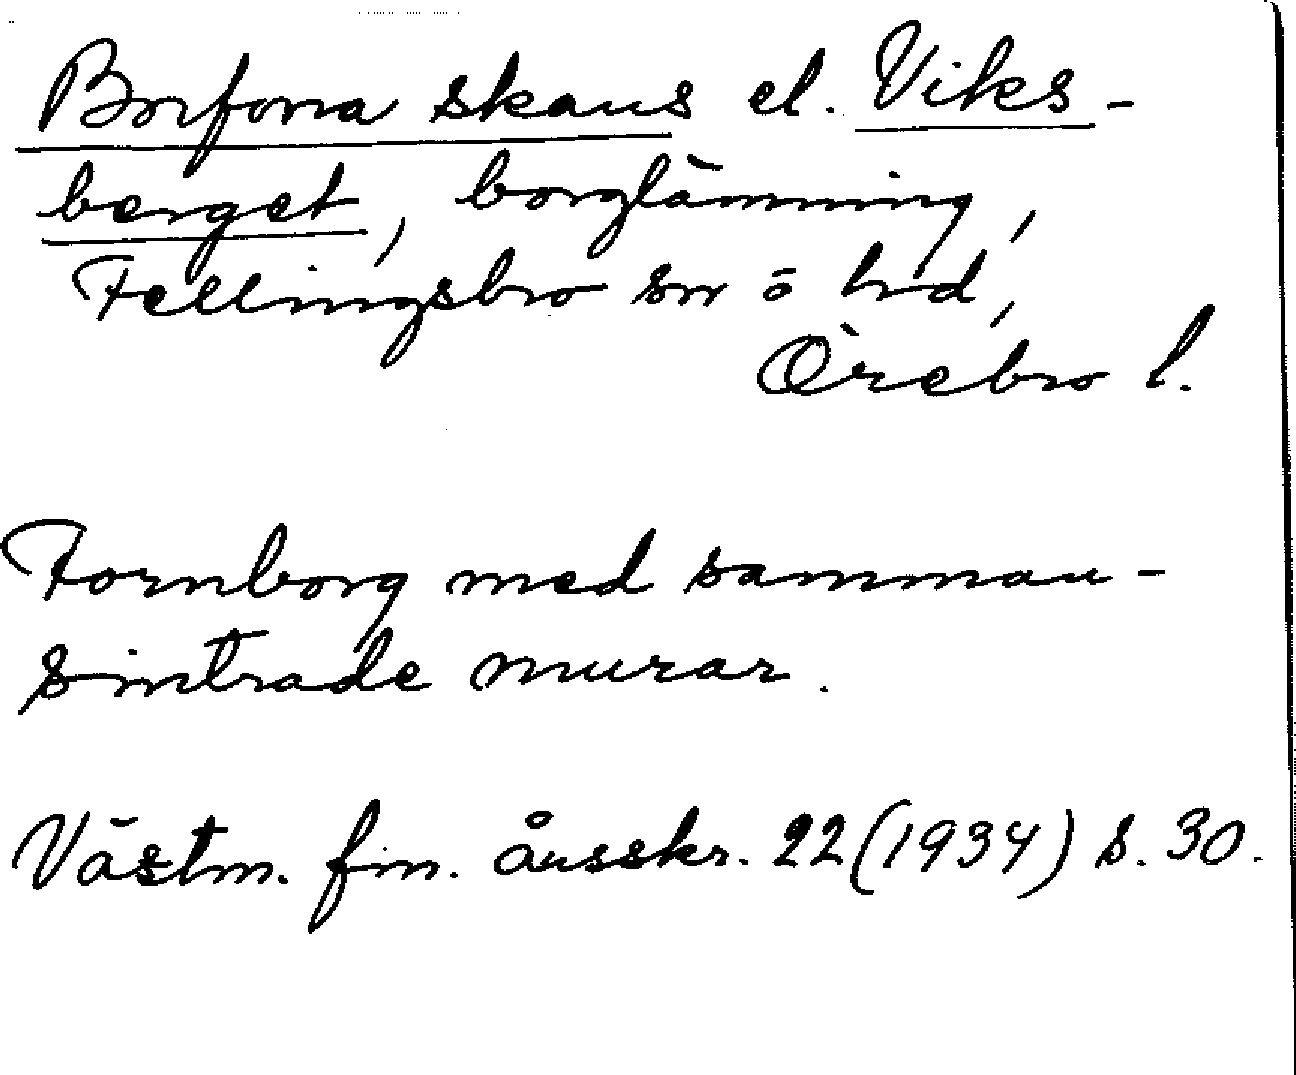 Borforsa skans el. Viks-
berget, borglämning,
Fellingsbro sn o hd,
Örebro l.
Fornborg med samman-
sintrade murar.
Västm. fm. årsskr. 22 (1934) s. 30.